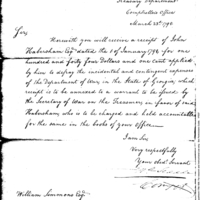 Treasury Department
Comptroller's Office
March 28th 1796
Sir,
Herewith you will receive a receipt of John
Habersham Esqr dated the 1 of January 1796 for one
hundred and forty four Dollars and one cent applied
by him to defray the incidental and contingent expences of the
Department of War in the State of Georgia, which
receipt is to be annexed to a warrant to be issued by
the Secretary of War on the Treasurer in favor of said
Habersham who is to be charged and held accountable
for the same in the books of your Office.
I am Sir,
Very respectfully
Your obed Servant
William Simmons Esqr